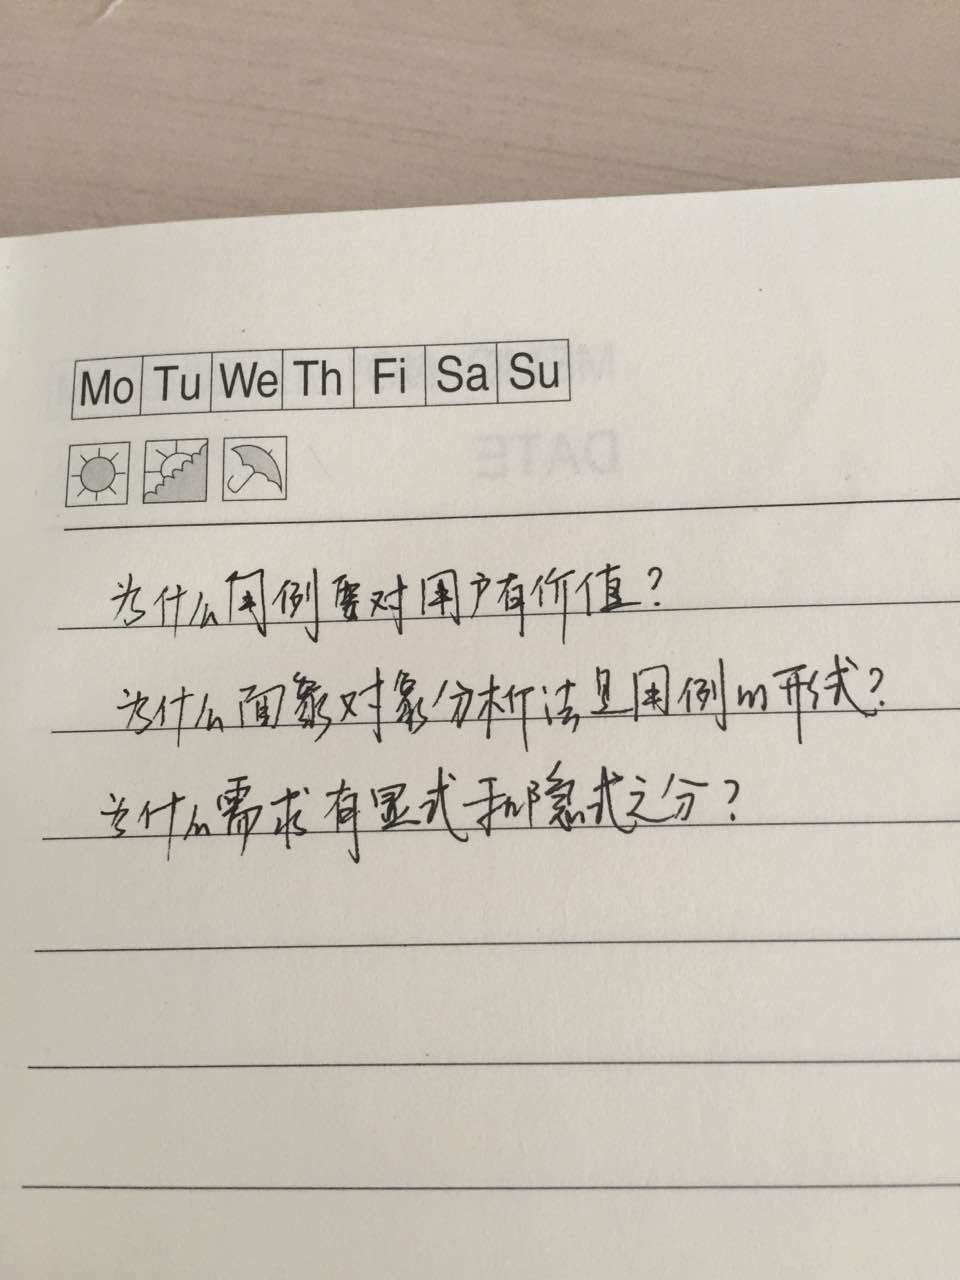 Mo Tu We Th Fi Sa Su
DATE
为什么用例要对用户有价值?
为什么面象对象分析法是用例的形式?
为什么需求有显式和隐式之分?